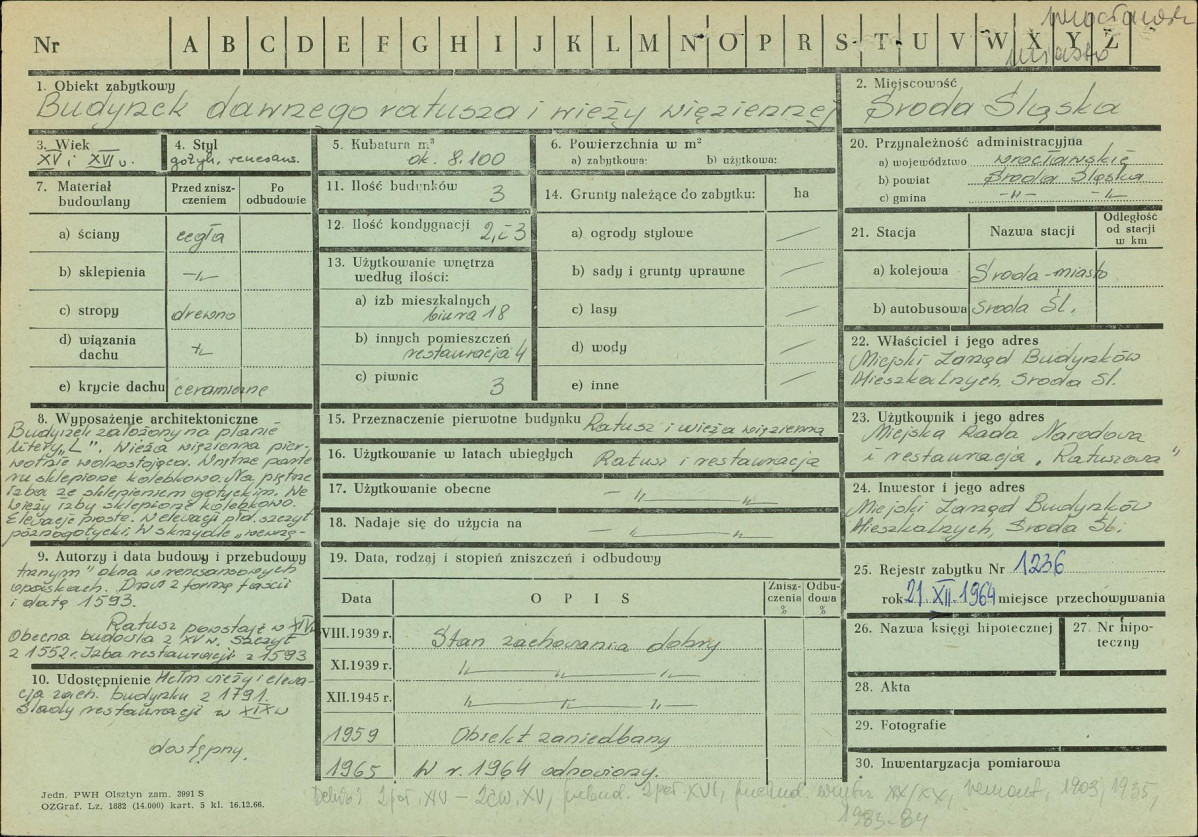 wrocławsk
miasto
Nr A B C D E F G H I J K L M N O P R S T U V W X Y Z
1. Obiekt zabytkowy
Budynek dawnego ratusza i wieży więziennej
2. Miejscowość
Środa Śląska
3. Wiek
XV i XVI w.
4. Styl
gotyk, renesans.
5. Kubatura m³
ok. 8.100
6. Powierzchnia w m²
a) zabytkowa: b) użytkowa:
20. Przynależność administracyjna
a) województwo wrocławskie
b) powiat Środa Śląska
c) gmina -"- -"-
7. Materiał budowlany
Przed zniszczeniem
Po odbudowie
a) ściany cegła
b) sklepienia -"-
c) stropy drewno
d) wiązania dachu -"-
e) krycie dachu ceramiczne
11. Ilość budynków 3
12. Ilość kondygnacji 2 i 3
13. Użytkowanie wnętrza
według ilości:
a) izb mieszkalnych
biura 18
b) innych pomieszczeń
restauracja 4
c) piwnic 3
14. Grunty należące do zabytku: ha
a) ogrody stylowe
b) sady i grunty uprawne
c) lasy
d) wody
e) inne
21. Stacja Nazwa stacji Odległość od stacji w km
a) kolejowa Środa-miasto
b) autobusowa Środa Śl.
22. Właściciel i jego adres
Miejski Zarząd Budynków
Mieszkalnych. Środa Śl.
8. Wyposażenie architektoniczne
Budynek założony na planie
litery „L". Wieża więzienna pier-
wotnie wolnostojąca. Wnętrze parte-
ru sklepione kolebkowo. Na piętrze
izba ze sklepieniem gotyckim. We
wieży izby sklepione kolebkowo.
Elewacje proste. W elewacji płd. szczyt
późnogotycki. W skrzydle „wewnę-
9. Autorzy i data budowy i przebudowy
trznym" okna w renesansowych
opaskach. Drzwi z formą fascii
i datą 1593.
Ratusz powstaje w XIV w.
Obecna budowla z XV w. Szczyt
z 1552 r. Izba restauracji z 1593
10. Udostępnienie Hełm wieży i elewa-
cja zach. budynku z 1791.
Ślady restauracji w XIX w
dostępny.
15. Przeznaczenie pierwotne budynku Ratusz i wieża więzienna
16. Użytkowanie w latach ubiegłych Ratusz i restauracja
17. Użytkowanie obecne -"-
18. Nadaje się do użycia na -"-
19. Data, rodzaj i stopień zniszczeń i odbudowy
Data OPIS Zniszczenia % Odbudowa %
VIII.1939 r. Stan zachowania dobry
XI.1939 r. -"- -"- -"-
XII.1945 r. -"- -"- -"-
1959 Obiekt zaniedbany
1965 W r. 1964 odnowiony.
23. Użytkownik i jego adres
Miejska Rada Narodowa
i restauracja „Ratuszowa"
24. Inwestor i jego adres
Miejski Zarząd Budynków
Mieszkalnych, Środa Śl.
25. Rejestr zabytku Nr 1236
rok 21.XII.1964 miejsce przechowywania
26. Nazwa księgi hipotecznej
27. Nr hipoteczny
28. Akta
29. Fotografie
30. Inwentaryzacja pomiarowa
Jedn. PWH Olsztyn zam. 3991 S
OZGraf. Lz. 1882 (14.000) kart. 5 kl. 16.12.66.
2 poł. XIV – 2 ćw. XV, przebud. 2 poł. XVI, przebud. wnętrz XIX/XX, remont, 1903, 1935,
1983-84